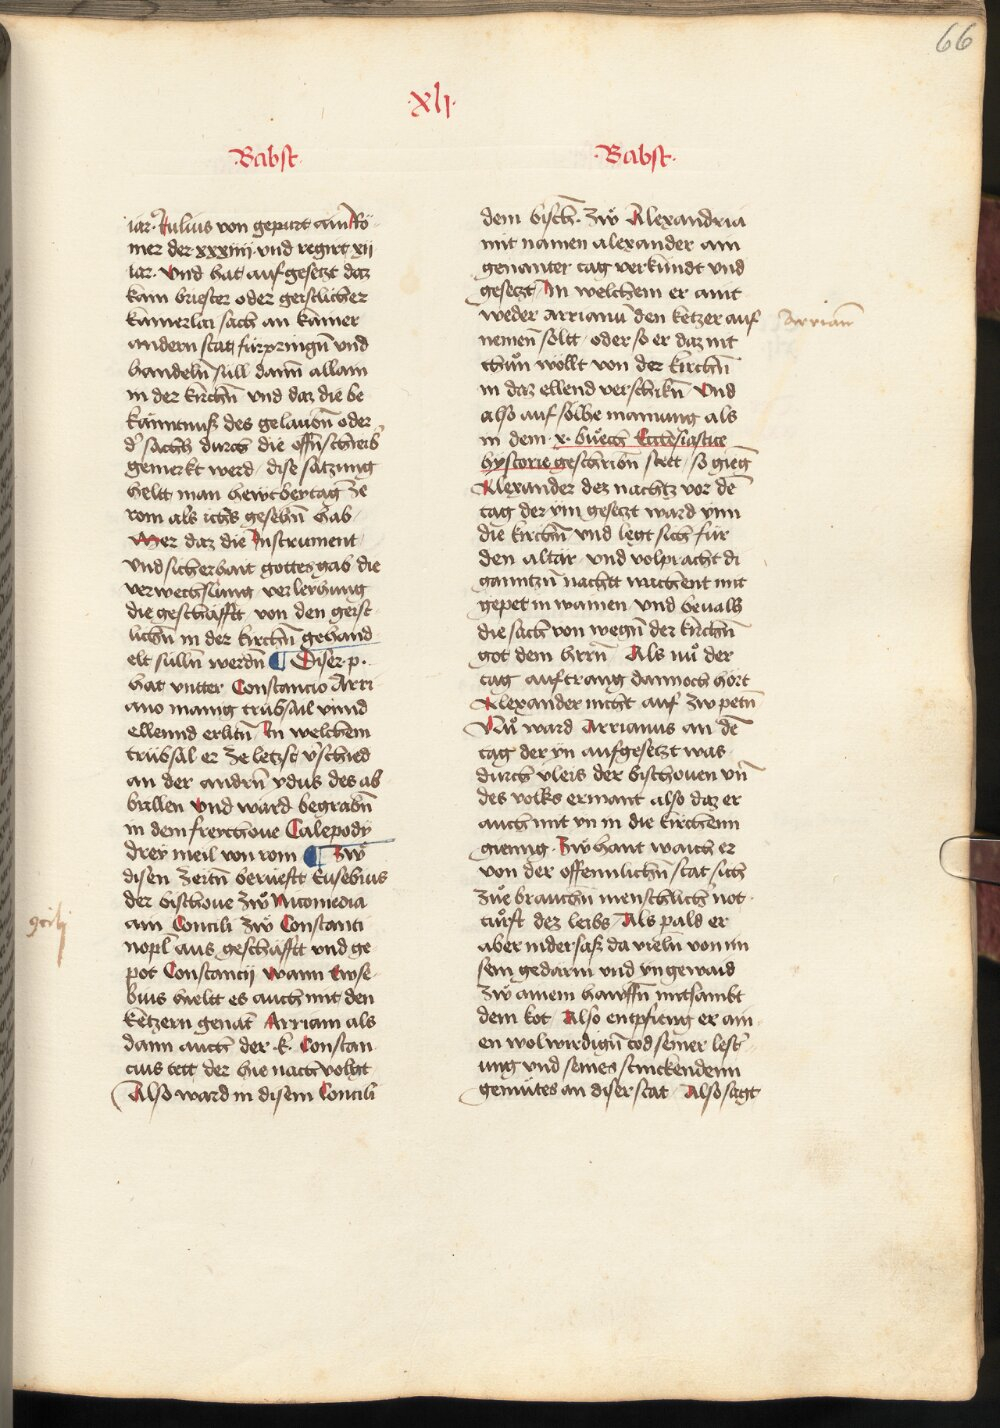 66
·xlj·
·Babst·
iar· Julius von gepurt ain Rö-
mer der xxxiiij· vnd regirt xij
iar· Vnd hat auf gesetzt daz
kain briester oder geistlicher
kainerlai sach an kainer
andern stat fürpringn̄ vnd
handeln̄ süll dann̄ allain
in der kirchn̄ vnd daz die be
käntnuß des gelaubn̄ oder
d' sachn̄ durch die offn̄ schreib'
gemerkt werd / dise satzung
helt man hewt bey tag ze
rom als ichs gesehn̄ hab·
Wer daz die Instrument
vnd sicherhait gottes gab die
verwechslung verleyhung
die geschäfft von den geist-
lichn̄ in der kirchn̄ gehand-
elt sülln̄ werdn̄ ¶ Diser·p·
hat vntter Constancio Arri
ano manig trübsail vnnd
ellennd erlitn̄ In welchem
trübsäl er ze letzst v'schied
an der andrn̄ ydus des ab
brillen Vnd ward begrabn̄
in dem freythoue Calepody
drey meil von rom ¶ Zẘ
disen zeitn̄ berüefft Eusebius
der bischoue zẘ Nicomedia
ain Concili zẘ Constanti
nopl̄ aus geschäfft vnd ge
pot Constancij Wann Ewse-
bius hielt es auch mit den
ketzern genāt Arriani als
dann auch der ·k· Constan
cius tett der hie nach volgt
Also ward in disem Concili
9cilj
·Babst·
dem bisch̄· zẘ Alexandria
mit namen alexander ain
genanter tag verkündt vnd
gesetzt / In welchem er aint
weder arrianū den ketzer auf
nemen̄ soltt / oder so er daz nit
thůn wöllt von der kirchn̄
in daz ellend verschikn̄ Vnd
also auf sölhe mainung als
in dem ·x· bůech Ecclesiastice
hystorie geschribn̄ stett / so gieg
Alexander dez nachtz vor dē
tag der ym gesetzt ward ynn
die kirchn̄ vnd legt sich für
den altär vnd volpracht di
ganntzn̄ nachtt wachent mit
gepet in wainen vnd beualh
die sach von wegn̄ der kirchn̄
got dem hrrn̄ Als nů der
tag auftrang dannoch hört
Alexander nicht auf zw petn̄
Nů ward Arrianus an dē
tag der yn aufgesetzt was
durch vleis der bischouen vn̄
des volks ermant also daz er
auch mit yn in die kirchenn
gienng· Zw hant waich er
von der offennlichn̄ stat sich
zůe brauchn̄ menschlich' not-
turft dez leibs Als pald er
aber nidersaß da vieln̄ von im
sein gedärm vnd yngewaid
zw ainem hawffn̄ mitsambt
dem kot Also entpfieng er ain
en wolwirdign̄ tod seiner lest'
ung vnd seines stinckendenn
gemütes an diser stat Also sagt
Arrian9